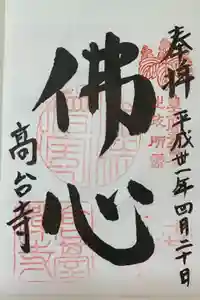 奉拝 平成廿一年四月二十日
佛心
高台寺